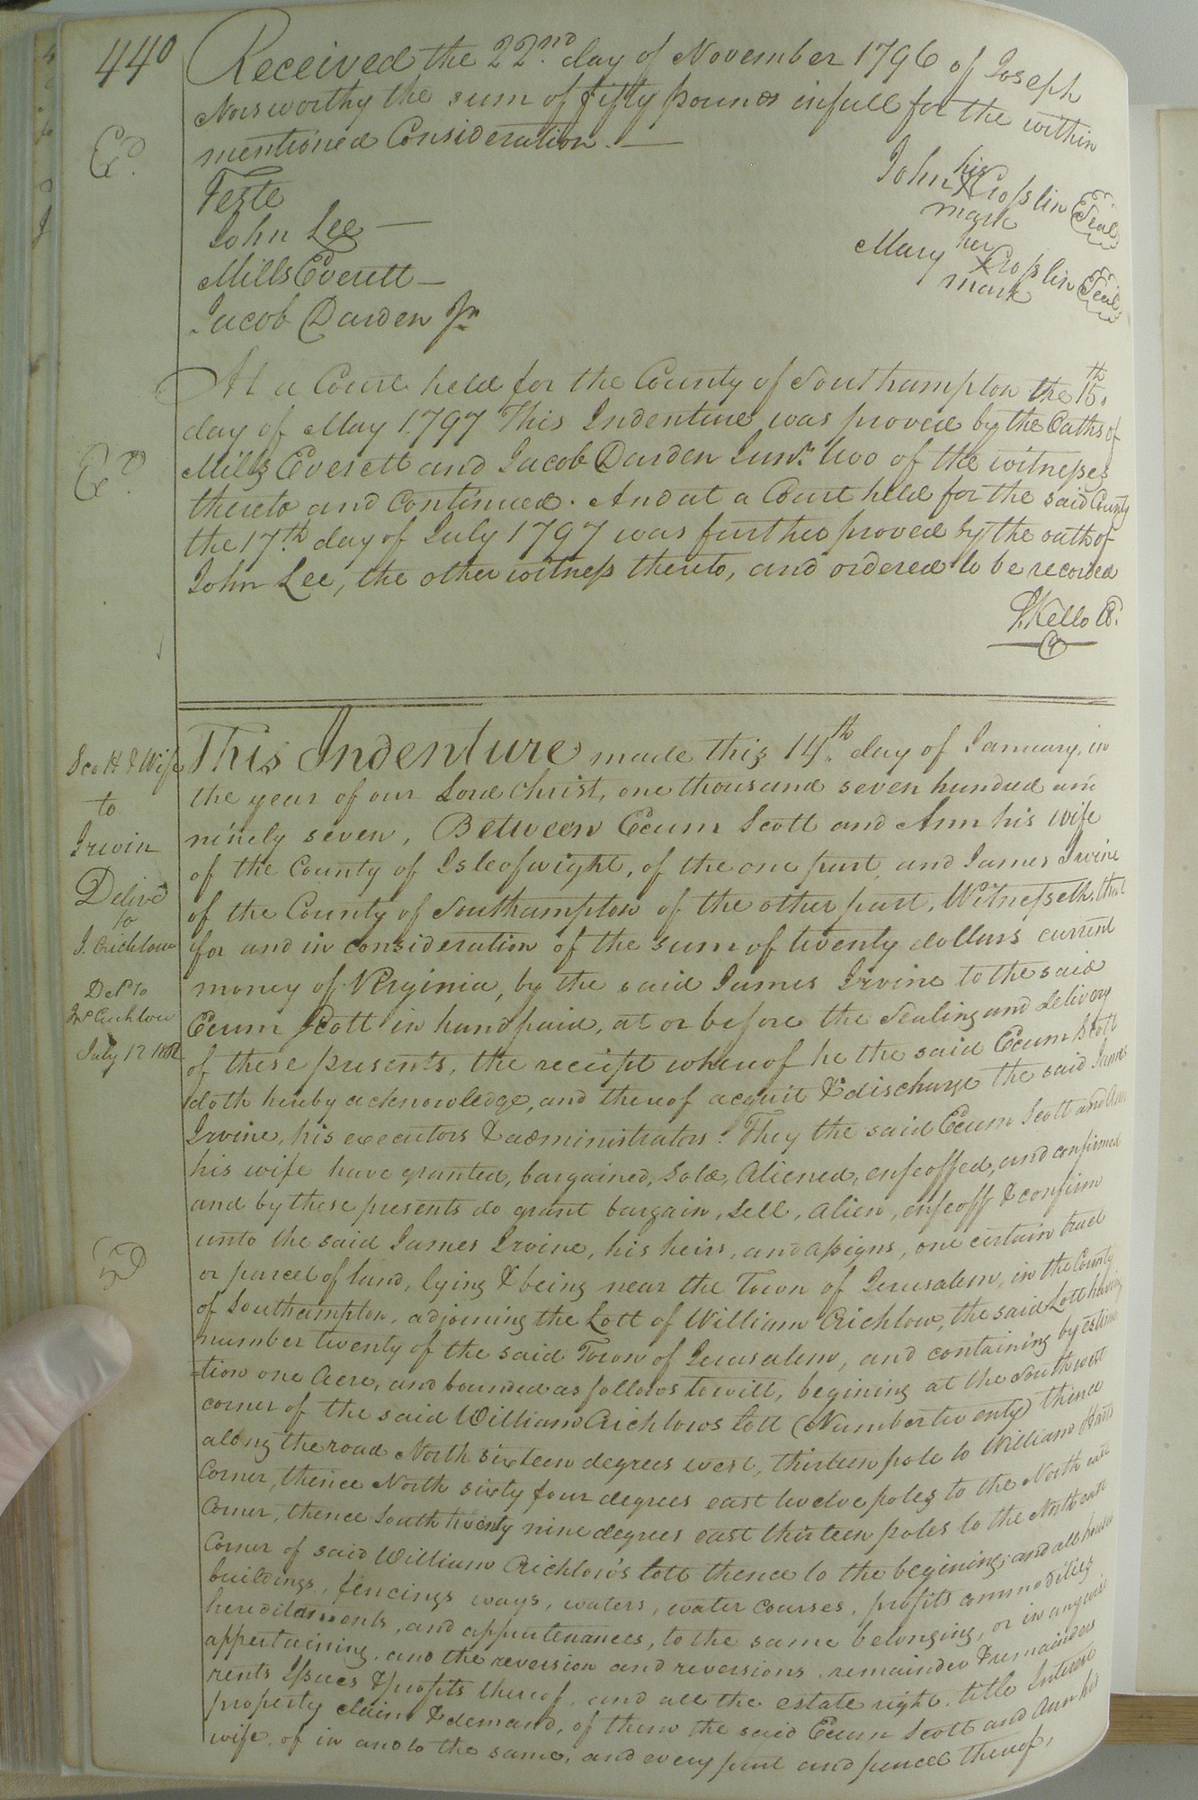 440
Received the 22nd. day of November 1796 of Joseph
Norsworthy the sum of fifty pounds in full for the within
mentioned Consideration. —
Ex'd.
Teste
John Lee —
Mills Everett —
Jacob Darden Jr.
John his X mark Croſslin Seal
Mary her X mark Croſslin Seal
At a Court held for the County of Southampton the 15th.
day of May 1797 This Indenture was proved by the Oaths of
Mills Everett and Jacob Darden Junr. two of the witneſses
Ex'd.
thereto and Continued. And at a Court held for the said County
the 17th. day of July 1797 was further proved by the oath of
John Lee, the other witneſs thereto, and ordered to be recorded
S. Kello Cl.
Scott & Wife
to
Irwin
Deliv'd
to
J. Crichlow
Del'd to
Crichlow
July 12
This Indenture made this 14th. day of January, in
the year of our Lord Christ, one thousand seven hundred and
ninety seven, Between Exum Scott and Ann his wife
of the County of Isle of wight, of the one part, and James Irvine
of the County of Southampton of the other part, Witneſseth, that
for and in consideration of the sum of twenty dollars current
money of Virginia, by the said James Irvine to the said
Exum Scott in hand paid, at or before the Sealing and delivery
of these presents, the receipt whereof he the said Exum Scott
doth hereby acknowledge, and thereof acquit & discharge the said James
Irvine, his executors & administrators: They the said Exum Scott and Ann
his wife have granted, bargained, Sold, Aliened, enfeoffed, and confirmed
and by these presents do grant bargain, Sell, Alien, enfeoff & confirm
unto the said James Irvine, his heirs, and aſsigns, one certain tract
or parcel of land, lying & being near the Town of Jerusalem, in the County
of Southampton, adjoining the Lott of William Crichlow, the said Lott having
number twenty of the said Town of Jerusalem, and containing by estima
=tion one Acre, and bounded as follows to wit, begining at the South west
corner of the said William Crichlows lott (Number twenty) thence
along the road North sixteen degrees west, thirteen pole to William Harts
Corner, thence North sixty four degrees east twelve poles to the North east
Corner, thence South twenty nine degrees east thirteen poles to the North east
Corner of said William Crichlow's lott thence to the begining; and all houses
buildings, fencings ways, waters, water courses, profits commodities
hereditaments, and appurtenances, to the same belonging, or in any wise
appertaining. and the reversion and reversions, remainder & remainders
rents Iſsues & profits thereof, and all the estate right, title Interest
property claim & demand, of them the said Exum Scott and Ann his
wife, of in and to the same, and every part and parcel thereof,